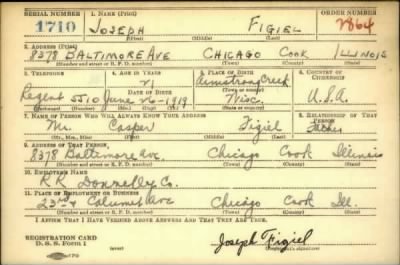 SERIAL NUMBER 1. NAME (Print) ORDER NUMBER
1710 JOSEPH FIGIEL 2864
(First) (Middle) (Last)
2. ADDRESS (Print)
8378 BALTIMORE AVE CHICAGO COOK ILLINOIS
(Number and street or R. F. D. number) (Town) (County) (State)
3. TELEPHONE 4. AGE IN YEARS 5. PLACE OF BIRTH 6. COUNTRY OF CITIZENSHIP
21 Armstrong Creek
DATE OF BIRTH (Town or county)
Regent 5510 June 26-1919 Wisc. U.S.A.
(Exchange) (Number) (Mo.) (Day) (Yr.) (State or country)
7. NAME OF PERSON WHO WILL ALWAYS KNOW YOUR ADDRESS 8. RELATIONSHIP OF THAT PERSON
Mr. Casper Figiel Father
(Mr., Mrs., Miss) (First) (Middle) (Last)
9. ADDRESS OF THAT PERSON
8378 Baltimore Ave. Chicago Cook Illinois
(Number and street or R. F. D. number) (Town) (County) (State)
10. EMPLOYER'S NAME
R.R. Donnelley Co.
11. PLACE OF EMPLOYMENT OR BUSINESS
23rd & Calumet Ave Chicago Cook Ill.
(Number and street or R. F. D. number) (Town) (County) (State)
I AFFIRM THAT I HAVE VERIFIED ABOVE ANSWERS AND THAT THEY ARE TRUE.
REGISTRATION CARD
D. S. S. Form 1 Joseph Figiel
(Registrant's signature)